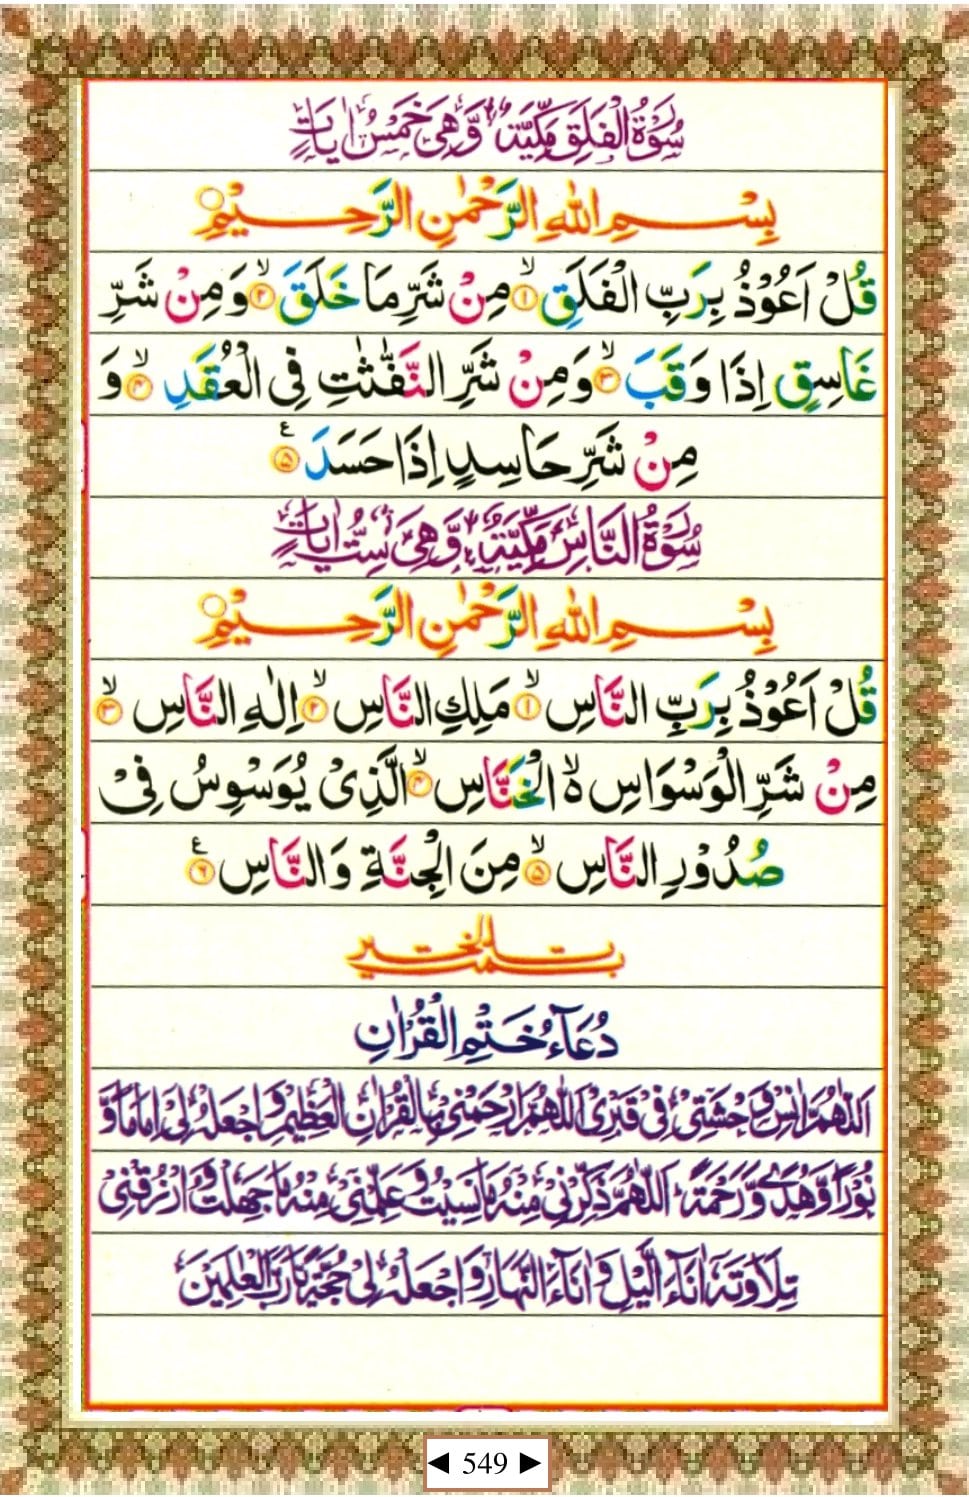 سُوْرَةُ الْفَلَقِ مَكِّيَّةٌ وَّهِىَ خَمْسُ اٰيَاتٍ
بِسْمِ اللهِ الرَّحْمٰنِ الرَّحِيْمِ
قُلْ اَعُوْذُ بِرَبِّ الْفَلَقِ ۙ‏﴿۱﴾ مِنْ شَرِّ مَا خَلَقَ ۙ‏﴿۲﴾ وَمِنْ شَرِّ
غَاسِقٍ اِذَا وَقَبَ ۙ‏﴿۳﴾ وَمِنْ شَرِّ النَّفّٰثٰتِ فِى الْعُقَدِ ۙ‏﴿۴﴾ وَ
مِنْ شَرِّ حَاسِدٍ اِذَا حَسَدَ ﴿۵﴾ ع
سُوْرَةُ النَّاسِ مَكِّيَّةٌ وَّهِىَ سِتُّ اٰيَاتٍ
بِسْمِ اللهِ الرَّحْمٰنِ الرَّحِيْمِ
قُلْ اَعُوْذُ بِرَبِّ النَّاسِ ۙ‏﴿۱﴾ مَلِكِ النَّاسِ ۙ‏﴿۲﴾ اِلٰهِ النَّاسِ ۙ‏﴿۳﴾
مِنْ شَرِّ الْوَسْوَاسِ ۵ۙ الْخَنَّاسِ ۙ‏﴿۴﴾ الَّذِىْ يُوَسْوِسُ فِىْ
صُدُوْرِ النَّاسِ ۙ‏﴿۵﴾ مِنَ الْجِنَّةِ وَالنَّاسِ ﴿۶﴾ ع
تمت بالخير
دُعَآءُ خَتْمِ الْقُرْاٰنِ
اَللّٰهُمَّ اٰنِسْ وَحْشَتِىْ فِىْ قَبْرِىْ اَللّٰهُمَّ ارْحَمْنِىْ بِالْقُرْاٰنِ الْعَظِيْمِ وَاجْعَلْهُ لِىْ اِمَامًا وَّ
نُوْرًا وَّهُدًى وَّرَحْمَةً اَللّٰهُمَّ ذَكِّرْنِىْ مِنْهُ مَا نَسِيْتُ وَعَلِّمْنِىْ مِنْهُ مَا جَهِلْتُ وَارْزُقْنِىْ
تِلَاوَتَهٗ اٰنَآءَ الَّيْلِ وَاٰنَآءَ النَّهَارِ وَاجْعَلْهُ لِىْ حُجَّةً يَّا رَبَّ الْعٰلَمِيْنَ
◄ 549 ►